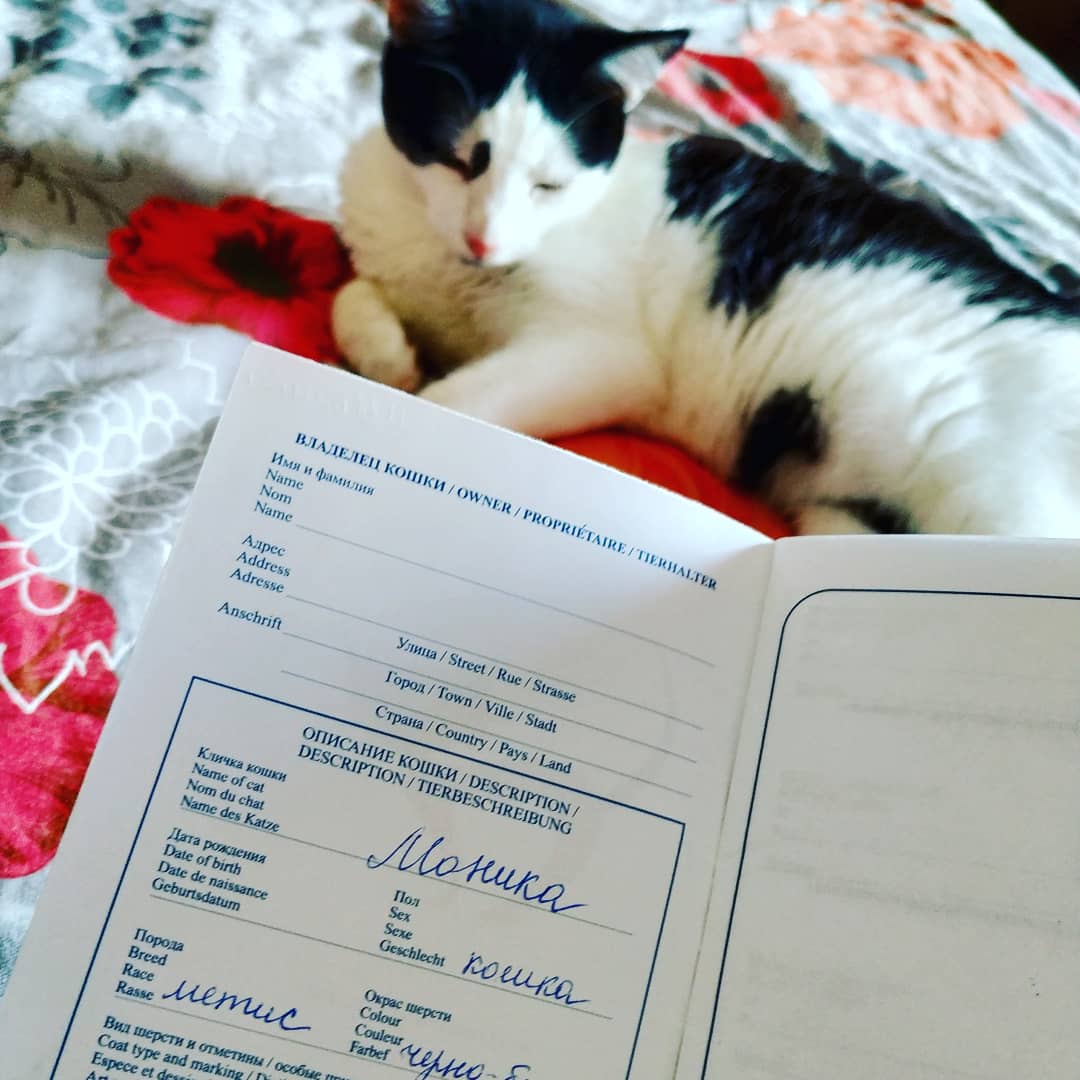 ВЛАДЕЛЕЦ КОШКИ / OWNER / PROPRIÉTAIRE / TIERИALTER
Имя и фамилия
Name
Nom
Name
Адрес
Address
Adresse
Anschrift
Улица / Street / Rue / Strasse
Город / Town / Ville / Stadt
Страна / Country / Pays / Land
ОПИСАНИЕ КОШКИ / DESCRIPTION /
DESCRIPTION / TIERBESCHREIBUNG
Кличка кошки
Name of cat
Nom du chat
Name des Katze
Моника
Дата рождения
Date of birth
Date de naissance
Geburtsdatum
Пол
Sex
Sexe
Geschlecht кошка
Порода
Breed
Race
Rasse метис
Окрас шерсти
Colour
Couleur
Farbef черно-б
Вид шерсти и отметины / особые
Coat type and marking /
Espece et